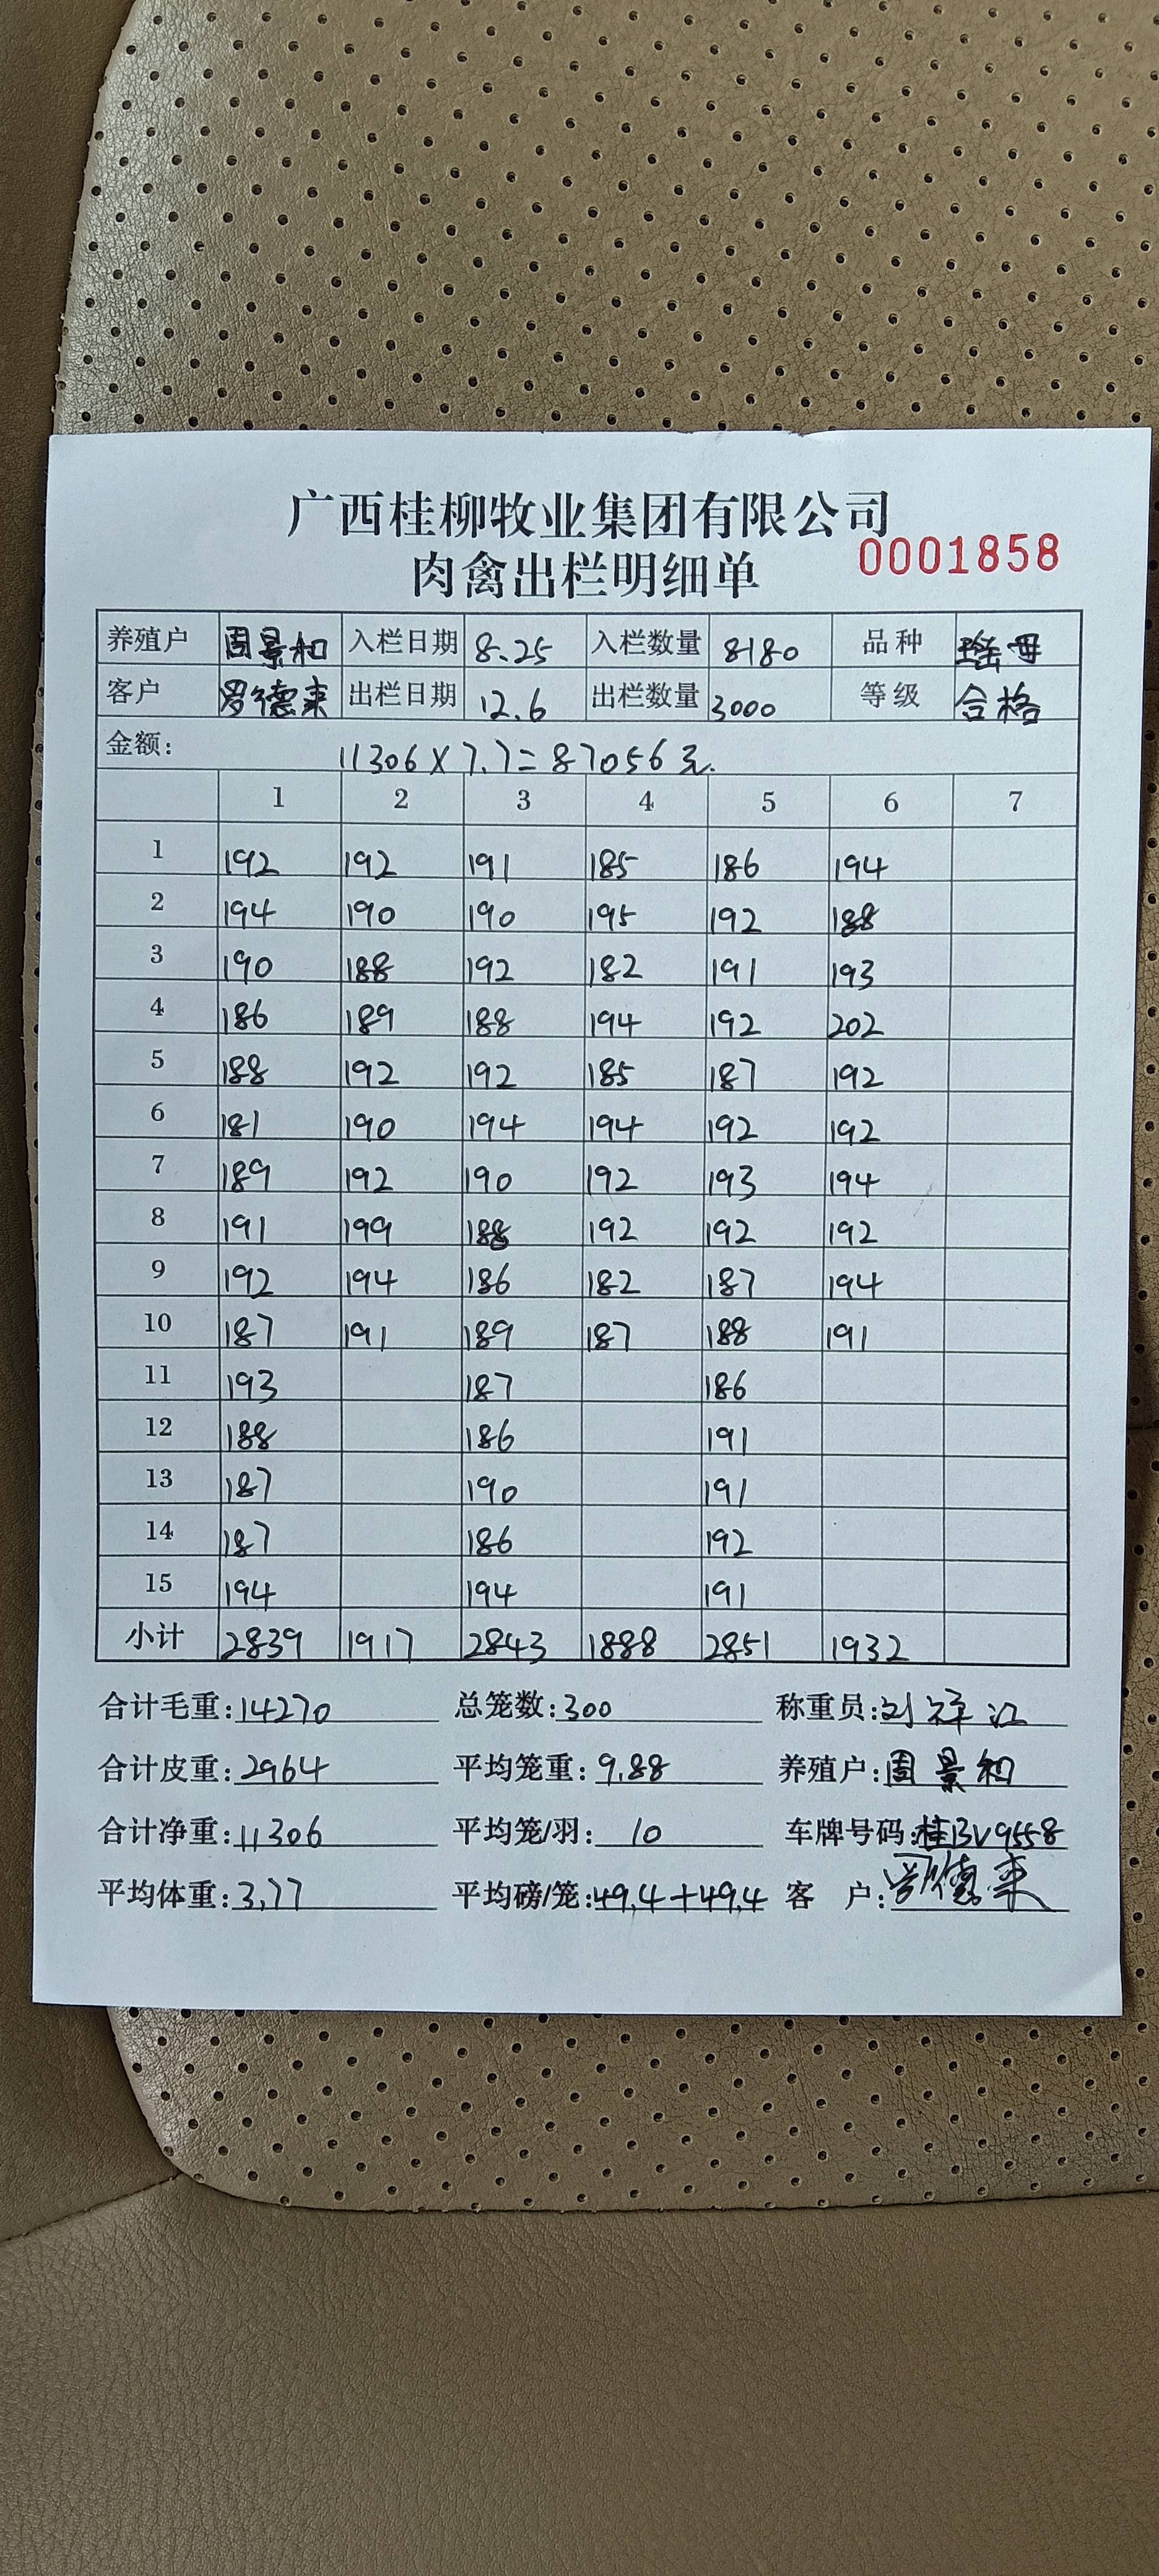 广西桂柳牧业集团有限公司
肉禽出栏明细单 0001858
养殖户 周景和 入栏日期 8.25 入栏数量 8180 品种 瑶母
客户 罗德来 出栏日期 12.6 出栏数量 3000 等级 合格
金额: 11306×7.7=87056元.
1 2 3 4 5 6 7
1 192 192 191 185 186 194
2 194 190 190 195 192 188
3 190 188 192 182 191 193
4 186 189 188 194 192 202
5 188 192 192 185 187 192
6 181 190 194 194 192 192
7 189 192 190 192 193 194
8 191 199 188 192 192 192
9 192 194 186 182 187 194
10 187 191 189 187 188 191
11 193 187 186
12 188 186 191
13 187 190 191
14 187 186 192
15 194 194 191
小计 2839 1917 2843 1888 2851 1932
合计毛重:14270 总笼数:300 称重员:刘祥江
合计皮重:2964 平均笼重:9.88 养殖户:周景和
合计净重:11306 平均笼/羽:10 车牌号码:桂BV9558
平均体重:3.77 平均磅/笼:49.4+49.4 客 户:罗德来